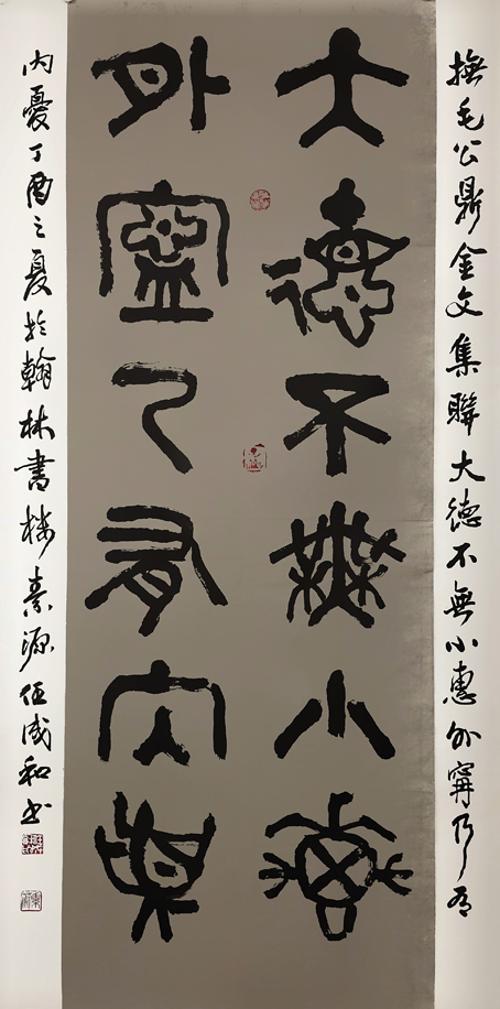 撫毛公鼎金文集聯大德不無小惠外寧乃有
大德不無小惠
外寧乃有內憂
內憂丁酉之夏於翰林書樓素源伍成和書